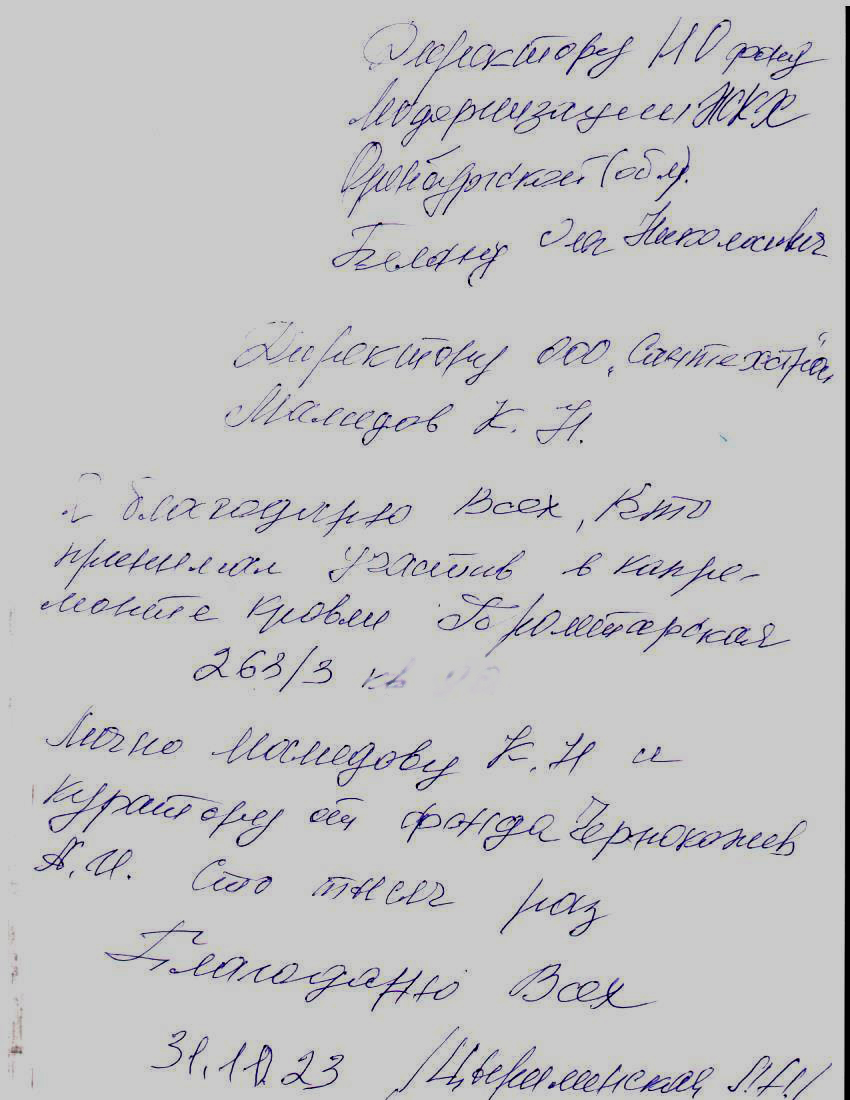 Директору НО фонд
Модернизации ЖКХ
Оренбургской (обл).
Белану Николаевич
Директору ООО „Сантехстрой"
Мамедов К. Н.
Я благодарю Всех, Кто
принимал участив в капре-
монте кровли Пролетарская
263/3 кв
Лично Мамедову К.Н и
куратору от фонда Чернокожев
А.И. Сто тысяч раз
Благодарю Всех
31.10.23